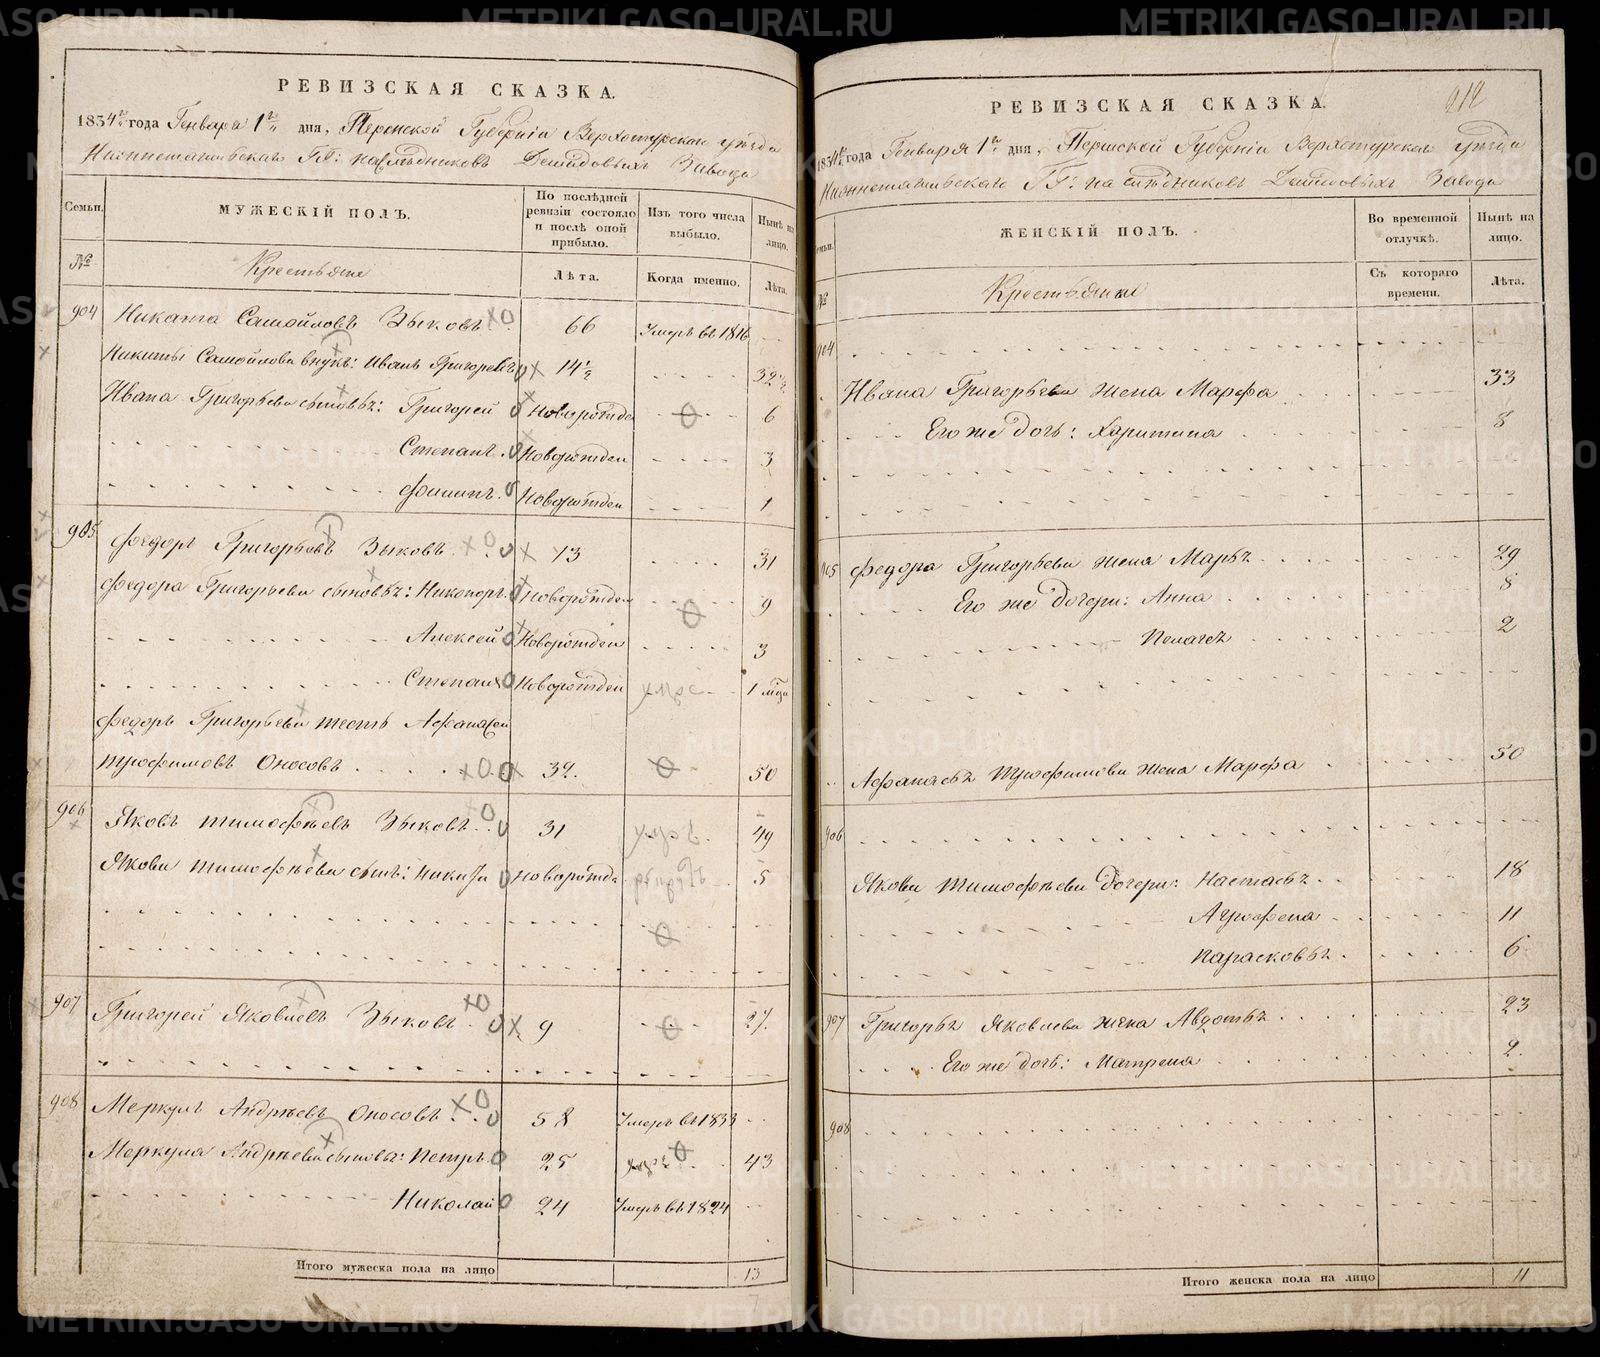 РЕВИЗСКАЯ СКАЗКА.
1834 года Генваря 1 дня, Пермской Губерніи Верхотурскаго уѣзда
Нижнетагильскаго ГГ: наслѣдниковъ Демидовыхъ Завода
Семьи.
МУЖЕСКІЙ ПОЛЪ.
По послѣдней ревизіи состояло и послѣ оной прибыло.
Изъ того числа выбыло.
Нынѣ на лицо.
№
Крестьяне
Лѣта.
Когда именно.
Лѣта.
904 Никита Самойловъ Зыковъ 66 Умеръ въ 1816
Никиты Самойлова внукъ: Иванъ Григорьевъ 14½ 32½
Ивана Григорьева сыновья: Григорей Новорожден 6
Степанъ Новорожден 3
Филипъ Новорожден 1
905 Федоръ Григорьевъ Зыковъ 13 31
Федора Григорьева сыновья: Никифоръ Новорожден 9
Алексей Новорожден 3
Степанъ Новорожден 1 мѣца
Федоръ Григорьева тесть Афанасей
Трофимовъ Оносовъ 32. 50
906 Яковъ Тимофѣевъ Зыковъ 31 49
Якова Тимофѣева сынъ: Никита Новорожде 5
907 Григорей Яковлевъ Зыковъ 9 27.
908 Меркулъ Андрѣевъ Оносовъ 58 Умеръ въ 1833
Меркула Андрѣева сыновья: Петръ 25 43
Николай 24 Умеръ въ 1824
Итого мужеска пола на лицо 13
912
РЕВИЗСКАЯ СКАЗКА.
1834 года Генваря 1 дня, Пермской Губерніи Верхотурскаго уѣзда
Нижнетагильскаго ГГ: наслѣдниковъ Демидовыхъ Завода
ЖЕНСКІЙ ПОЛЪ.
Во временной отлучкѣ.
Нынѣ на лицо.
№
Крестьянки
Съ котораго времени.
Лѣта.
904
Ивана Григорьева жена Марфа 33
Его же дочь: Харитина 8
905 Федора Григорьева жена Марья 29
Его же дочери: Анна 8
Пелагея 2
Афанасья Трофимова жена Марфа 50
906
Якова Тимофѣева дочери: Настасья 18
Агрофена 11
Парасковья 6
907 Григорья Яковлева жена Авдотья 23
Его же дочь: Матрена 2.
908
Итого женска пола на лицо 11
METRIKI.GASO-URAL.RU